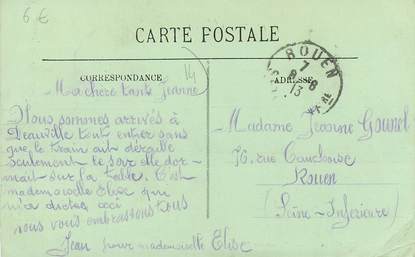 6 €
CARTE POSTALE
CORRESPONDANCE
ADRESSE
14
ROUEN
7
8-8
13
Ma chère tante Jeanne
Nous sommes arrivés à
Deauville tout entier sans
que le train ait déraillé
seulement le soir elle dor-
mait sur la table. C'est
mademoiselle Elise qui
m'a dicter ceci
nous vous embrassons tous
Jean pour mademoiselle Elise
Madame Jeanne
76 rue
Rouen
(Seine-Inférieure)